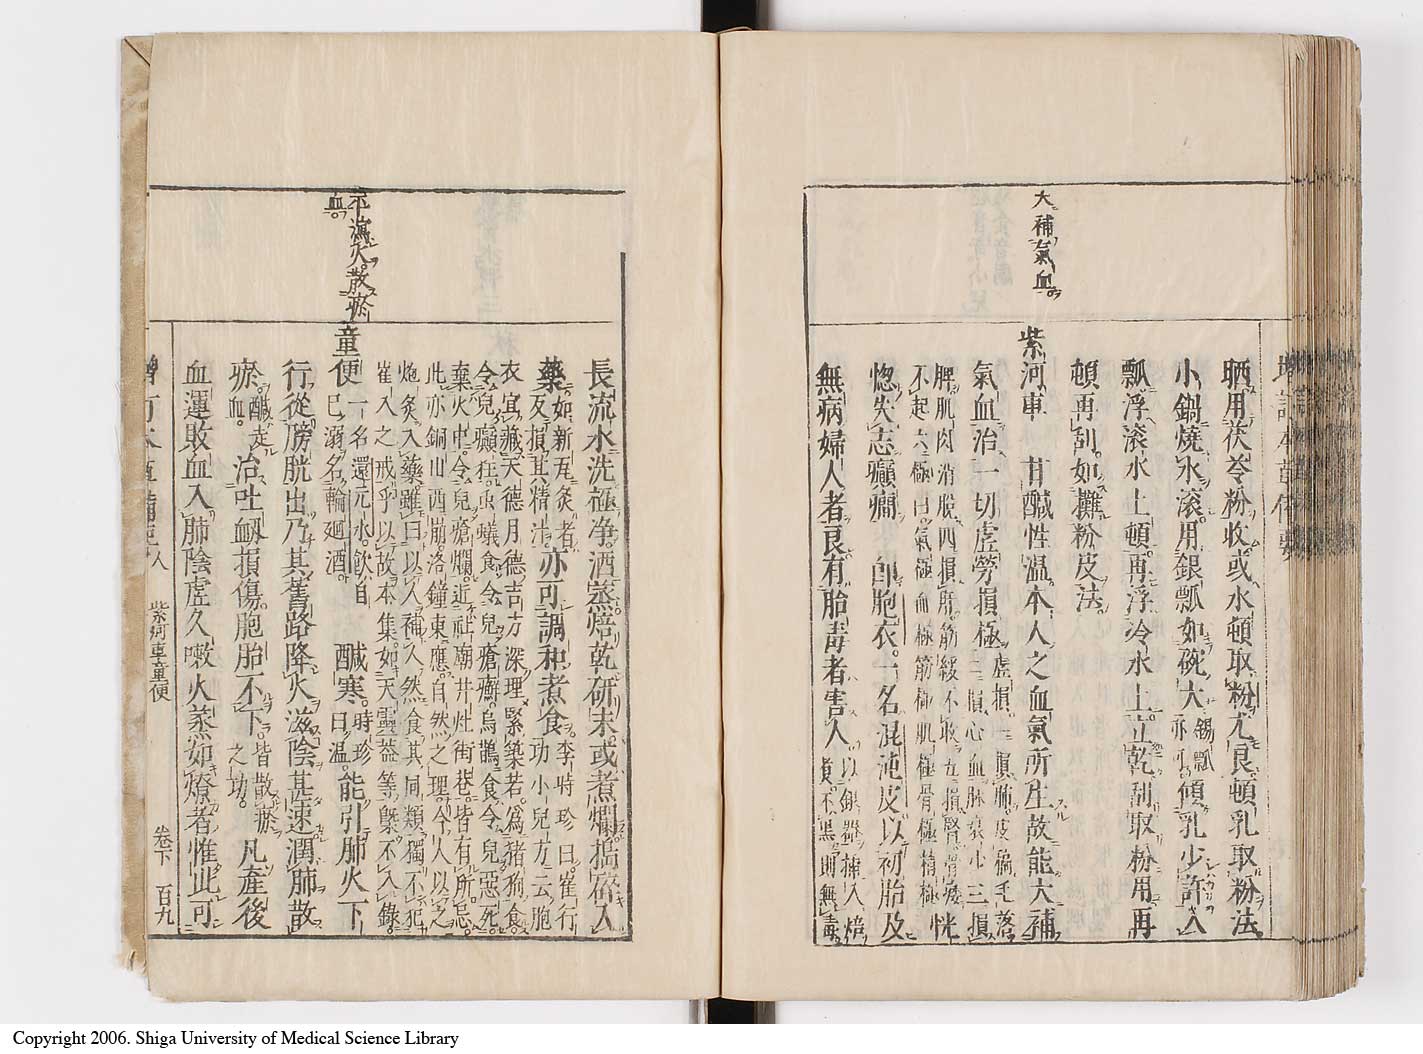 大補氣血
晒用茯苓粉收或水頓取粉尤良頓乳取粉法
小鍋燒水滾用銀瓢如碗大錫瓢亦可傾乳少許入
瓢浮滾水上頓再浮冷水上立乾刮取粉用再
頓再刮如攤粉皮法
紫河車 甘醎性溫本人之血氣所生故能大補
氣血治一切虛勞損極虛損一損肺皮槁毛落二損心血脉衰少三損
脾肌肉消脫四損肝筋緩不收五損腎骨痿不起六極曰氣極血極筋極肌極骨極精極恍
惚失志癲癇 卽胞衣一名混沌皮以初胎及
無病婦人者良有胎毒者害人以銀器揷入焙煑不黑則無毒
長流水洗極净酒蒸焙乾硏末或煮爛搗碎入
藥如新瓦灸者反損其精汁亦可調和煮食李時珍曰崔行功小兒方云胞
衣宜藏天德月德吉方深埋緊築若爲猪狗食
令兒癲狂虫蟻食令兒瘡癬烏鵲食令兒惡死
棄火中令兒瘡爛近社廟井灶街巷皆有所忌
此亦銅山西崩洛鐘東應自然之理今人以之
炮灸入藥雖曰以人補人然食其同類獨不犯
崔入之戒乎以故本集如天靈葢等槩不入錄
不瀉火散瘀血
童便一名還元水飲自己溺名輪廻酒 醎寒時珍曰溫能引肺火下
行從膀胱出乃其舊路降火滋陰甚速潤肺散
瘀醎走血治吐衂損傷胞胎不下皆散瘀之功凡產後
血運敗血入肺陰虛久嗽火蒸如燎者惟此可
人 紫河車童便 卷下 百九